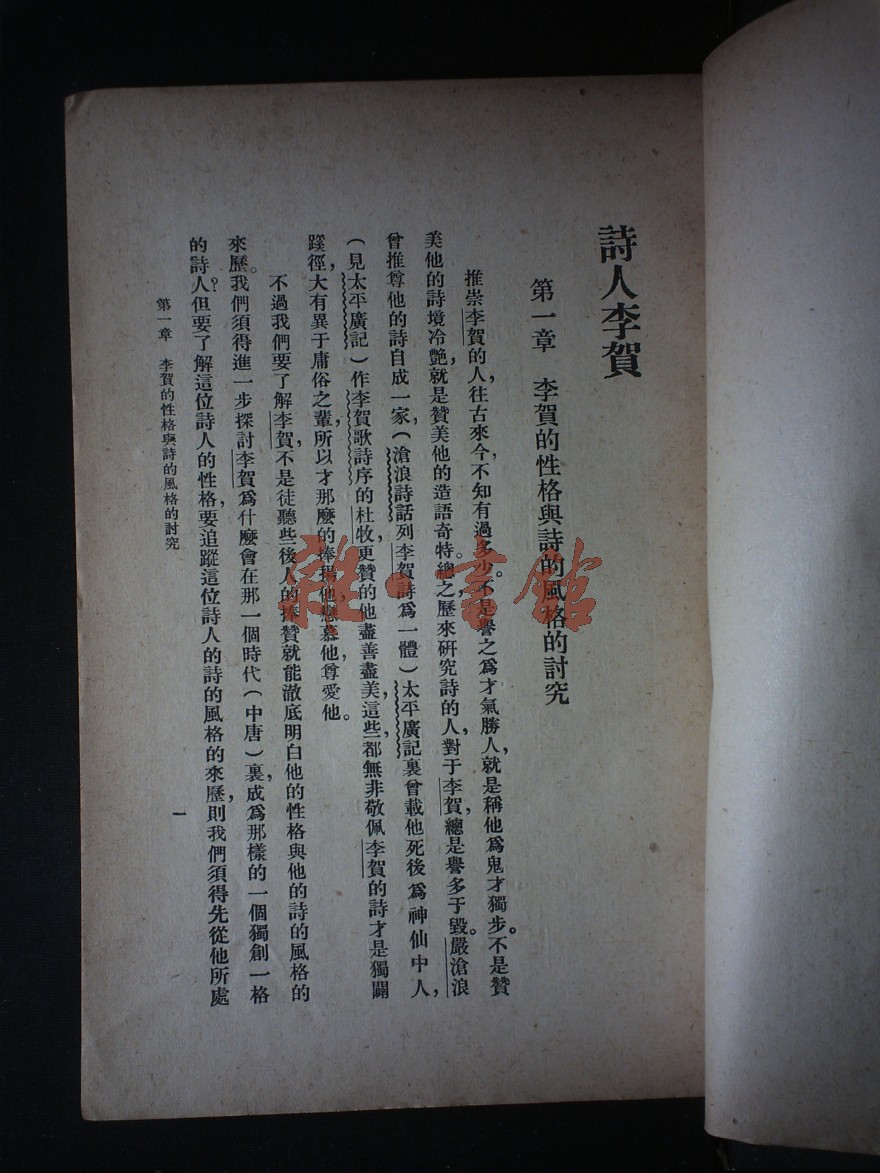 詩人李賀
第一章　李賀的性格與詩的風格的討究
推崇李賀的人，往古來今，不知有過多少。不是譽之爲才氣勝人，就是稱他爲鬼才獨步。不是贊
美他的詩境冷艷，就是贊美他的造語奇特。總之，歷來研究詩的人，對于李賀，總是譽多于毀。嚴滄浪
曾推尊他的詩自成一家，（滄浪詩話列李賀詩爲一體）太平廣記裏曾載他死後爲神仙中人，
（見太平廣記）作李賀歌詩序的杜牧，更贊的他盡善盡美，這些，都無非敬佩李賀的詩才是獨闢
蹊徑，大有異于庸俗之輩，所以才那麼的捧揚他，戀慕他，尊愛他。
不過我們要了解李賀，不是徒聽些後人的捧贊就能澈底明白他的性格與他的詩的風格的
來歷。我們須得進一步探討李賀爲什麼會在那一個時代（中唐）裏，成爲那樣的一個獨創一格
的詩人？但要了解這位詩人的性格，要追蹤這位詩人的詩的風格的來歷，則我們須得先從他所處
第一章　李賀的性格與詩的風格的討究
一
雜·書館